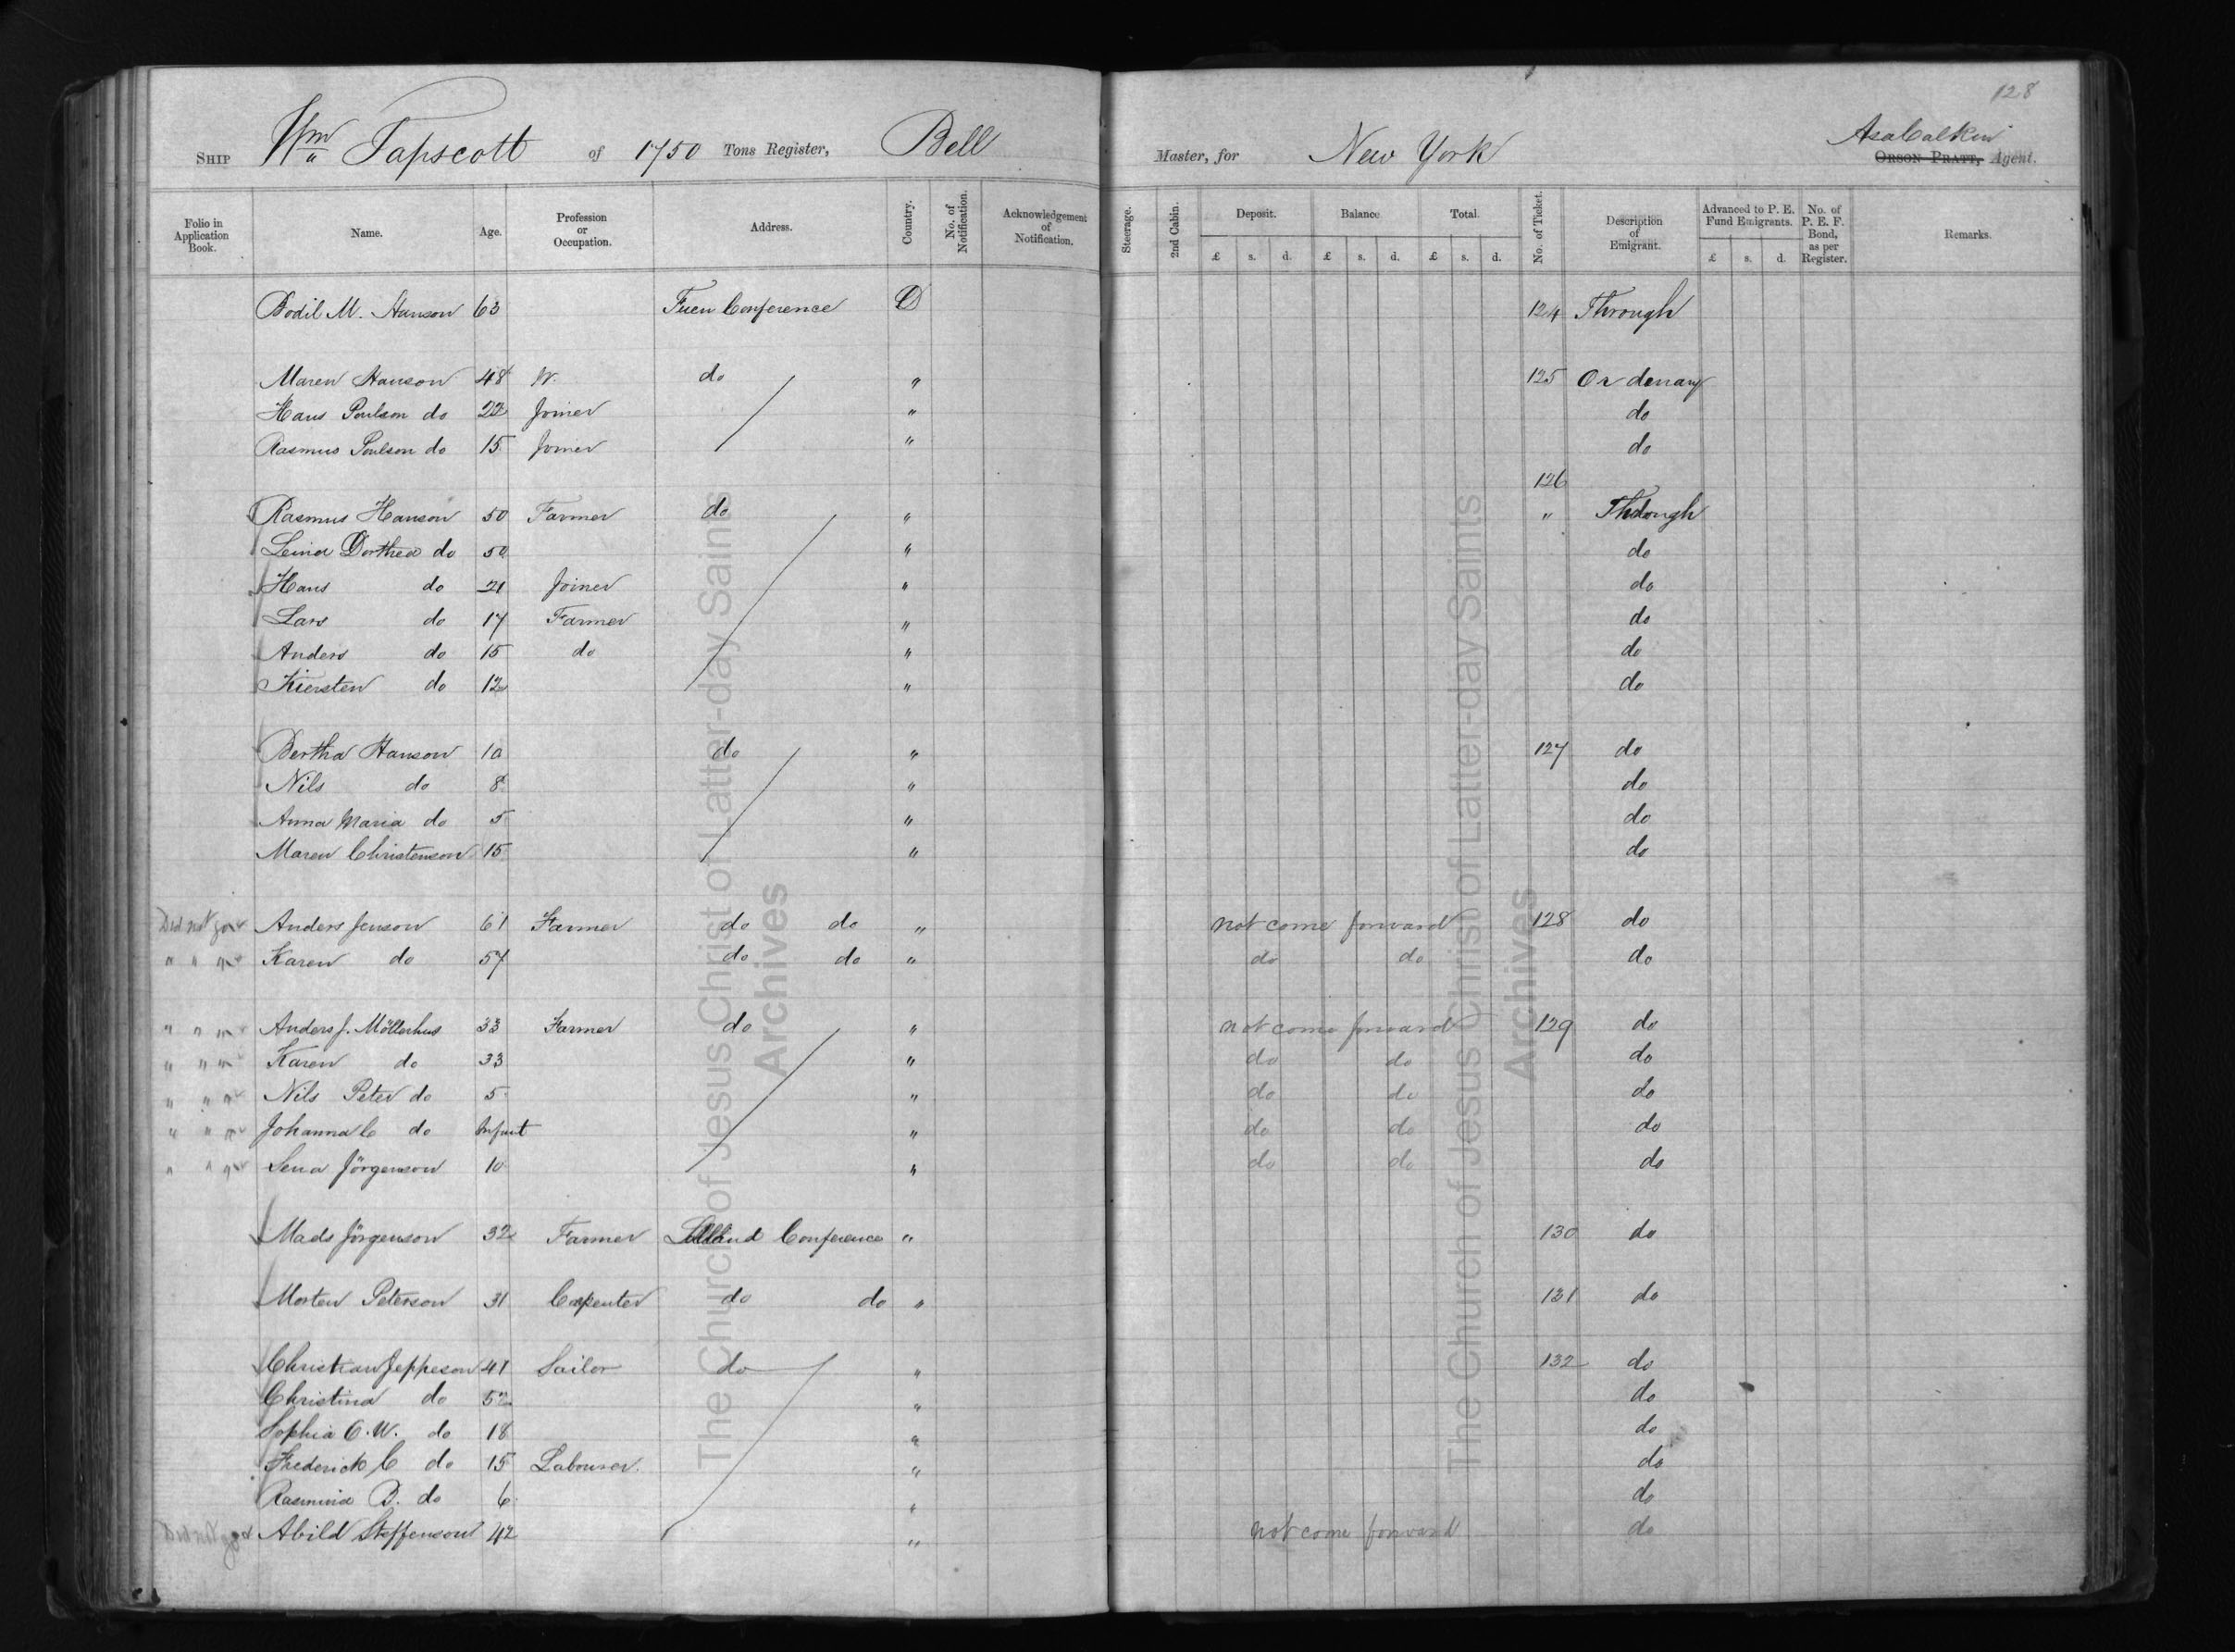 128
SHIP Wm Tapscott of 1750 Tons Register, Bell Master, for New York Asa Calkin ORSON PRATT, Agent.
Folio in Application Book. Name. Age. Profession or Occupation. Address. Country. No. of Notification. Acknowledgement of Notification. Steerage. 2nd Cabin. Deposit. Balance Total. No. of Ticket. Description of Emigrant. Advanced to P. E. Fund Emigrants. No. of P. E. F. Bond, as per Register. Remarks.
£ s. d. £ s. d. £ s. d. £ s. d.
Bodil M. Hanson 63 Fuen Conference D 124 Through
Maren Hanson 48 W. do " 125 Ordenary
Hans Poulson do 22 Joiner " do
Rasmus Poulson do 15 Joiner " do
126
Rasmus Hanson 50 Farmer do " " Through
Leina Dorthea do 50 " do
Hans do 21 Joiner " do
Lars do 17 Farmer " do
Anders do 15 do " do
Kiersten do 12 " do
Bertha Hanson 10 do " 127 do
Nils do 8 " do
Anna Maria do 5 " do
Maren Christenson 15 " do
Did not go Anders Jenson 61 Farmer do do " not come forward 128 do
" " " Karen do 57 do do " do do do
" " " Anders J. Möllerhus 33 Farmer do " not come forward 129 do
" " " Karen do 33 " do do do
" " " Nils Peter do 5 " do do do
" " " Johanna C do Infant " do do do
" " " Sena Jörgenson 10 " do do do
Mads Jörgenson 32 Farmer Conference " 130 do
Morten Peterson 31 Carpenter do do " 131 do
Christian Jeppeson 41 Sailor do " 132 do
Christina do 52 " do
Sophia C. W. do 18 " do
Frederick C do 15 Labourer. " do
Rasmina B. do 6 " do
Did not go Abild Steffenson 42 " not come forward do
The Church of Jesus Christ of Latter-day Saints
Archives
The Church of Jesus Christ of Latter-day Saints
Archives